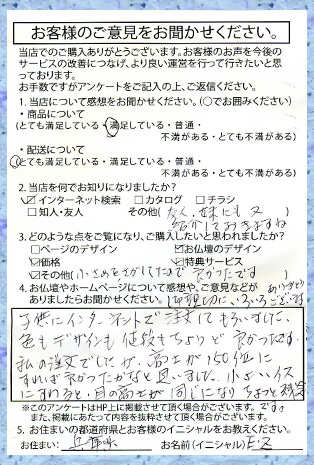 お客様のご意見をお聞かせください。
当店でのご購入ありがとうございます。お客様のお声を今後の
サービスの改善につなげ、より良い運営を行って行きたいと思
っております。
お手数ですがアンケートをご記入の上、ご返信ください。
1. 当店について感想をお聞かせください。(○でお囲みください)
・商品について
(とても満足している・満足している・普通・
不満がある・とても不満がある)
・配送について
(とても満足している・満足している・普通・
不満がある・とても不満がある)
2. 当店を何でお知りになりましたか？
☑インターネット検索 □カタログ □チラシ
□知人・友人 その他(友人、妹にも又
紹介しておきますね)
3. どのような点をご覧になり、ご購入したいと思われましたか？
□ページのデザイン ☑お仏壇のデザイン
☑価格 ☑特典サービス
☑その他(小さめをさがしてたので良かったです)
4. お仏壇やホームページについて感想や、ご意見などが
ありましたらお聞かせください。ご親切にいろいろありがとうございます
子供にインターネットで注文してもらいました。
色もデザインも値段もちょうど良かったです。
私の注文でしたが、高さが150位に
すれば良かったかなと思いました。小さいイス
にすわると、目の高さが同じになりちょっと残念
です。
※このアンケートはHP上に掲載させて頂く場合がございます。
また、掲載にあたって内容を抜粋させて頂く場合がございます。
5. お住まいの都道府県とお客様のイニシャルをお教えください。
お住まい: 兵庫県 お名前(イニシャル) E・Z